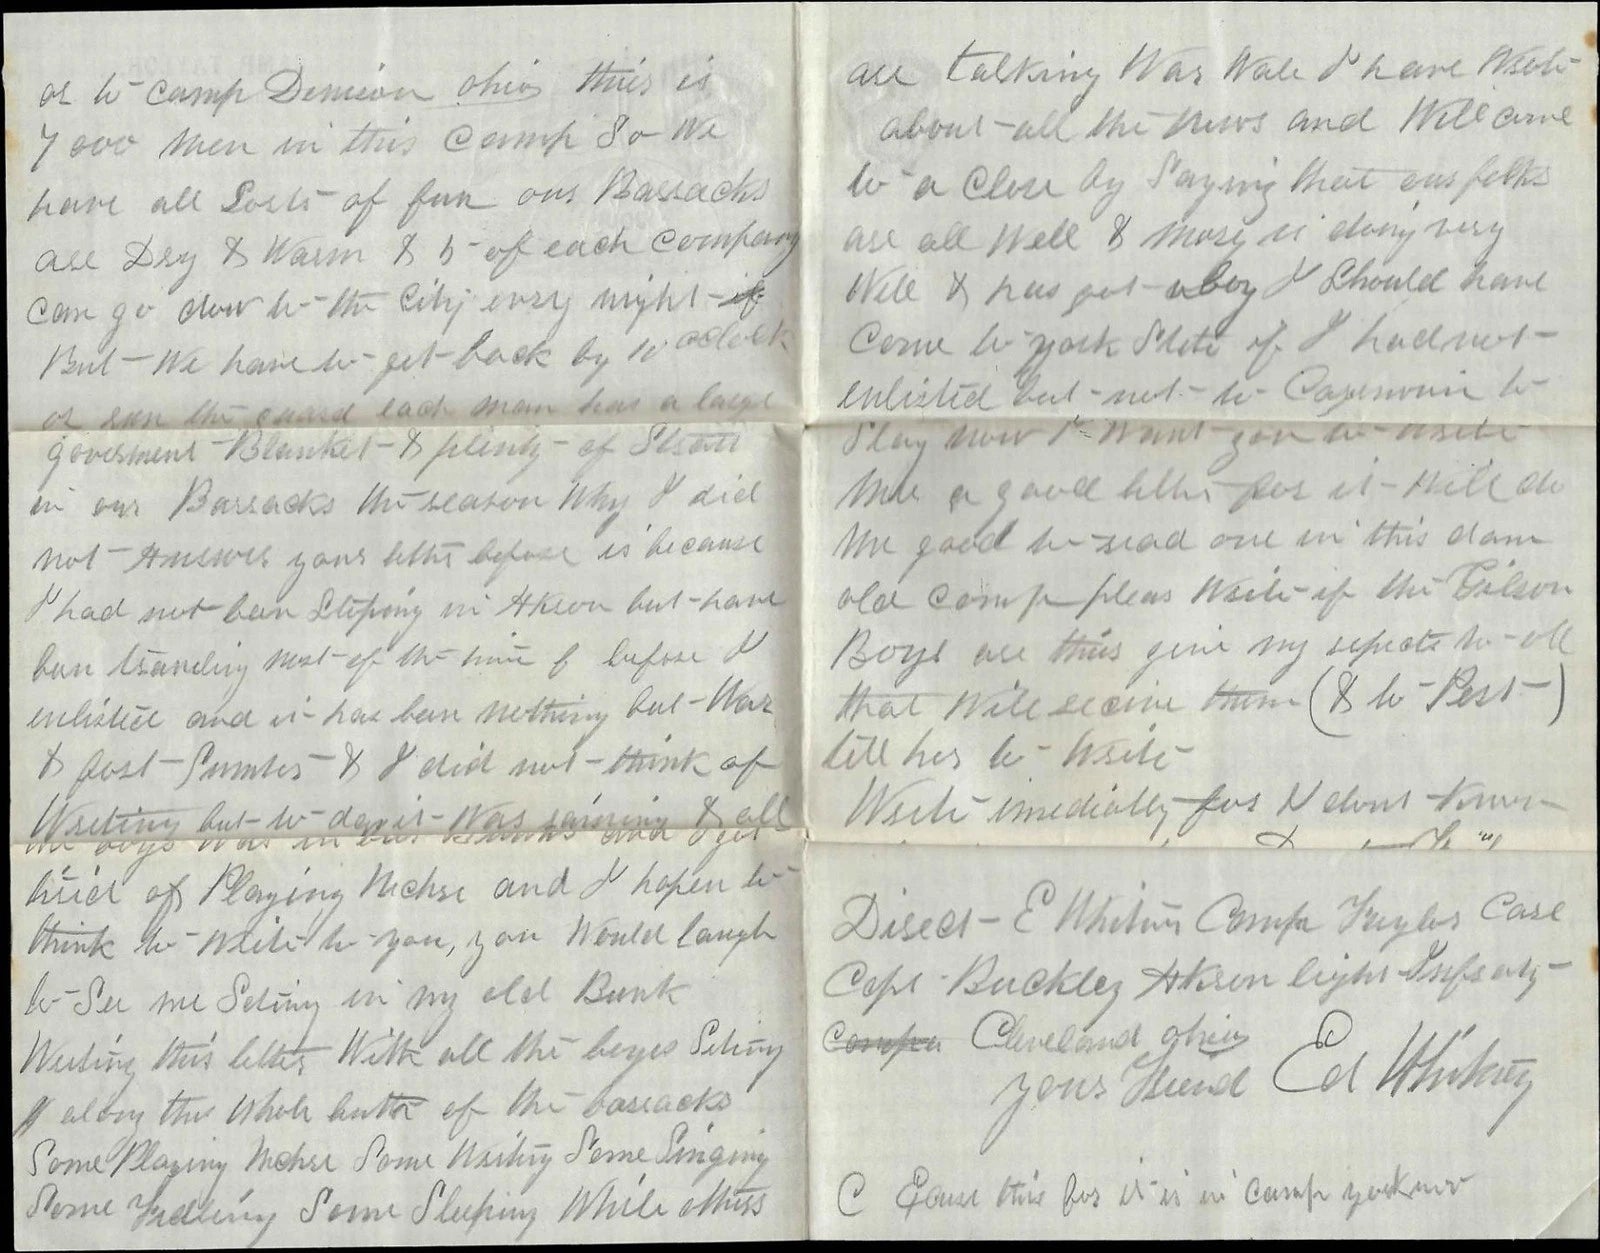 or to camp Denison ohio this is
7000 Men in this Camp So We
have all Sorts of fun our Barracks
are Dry & Warm & 5 of each company
can go dow to the City evry night
But We have to get back by 10 oclock
or run the guard each man has a large
goverment Blanket & plenty of Straw
in our Barracks the reason Why I did
not Answer your letter before is because
I had not ben Sleping in Akron but have
ben traveling most of the time before I
enlisted and it has ben nothing but War
& fort Sumter & I did not think of
Writing but to day it Was raining & all
the boys Was in and I got
tired of Playing and I hapen to
think to write to you, you Would laugh
to See me Seting in my old Bunk
Writing this letter With all the boyes Seting
along the Whole of the barracks
Some Playing Some Writing Some Singing
Some Fidling Some Sleeping While others
are talking War Wale I have Write
about all the News and Will come
to a Close by Saying that our folks
are all Well & Mary is doing very
Well & has got a boy I Should have
Come to york State if I had not
enlisted but not to Cazenovia to
Stay now I Want you to Write
me a good letter for it Will do
me good to read one in this dam
old camp pleas Write if the Gilson
Boys are thir give my respects to all
that Will receive them (& to Pert)
tell her to Write
Write imediatly for I dont know
Direct E Whitney Camp Taylor Care
Capt Buckley Akron light Infrantry
Compa Cleveland ohio
your Friend Ed Whitney
Ecuse this for it is in camp you know